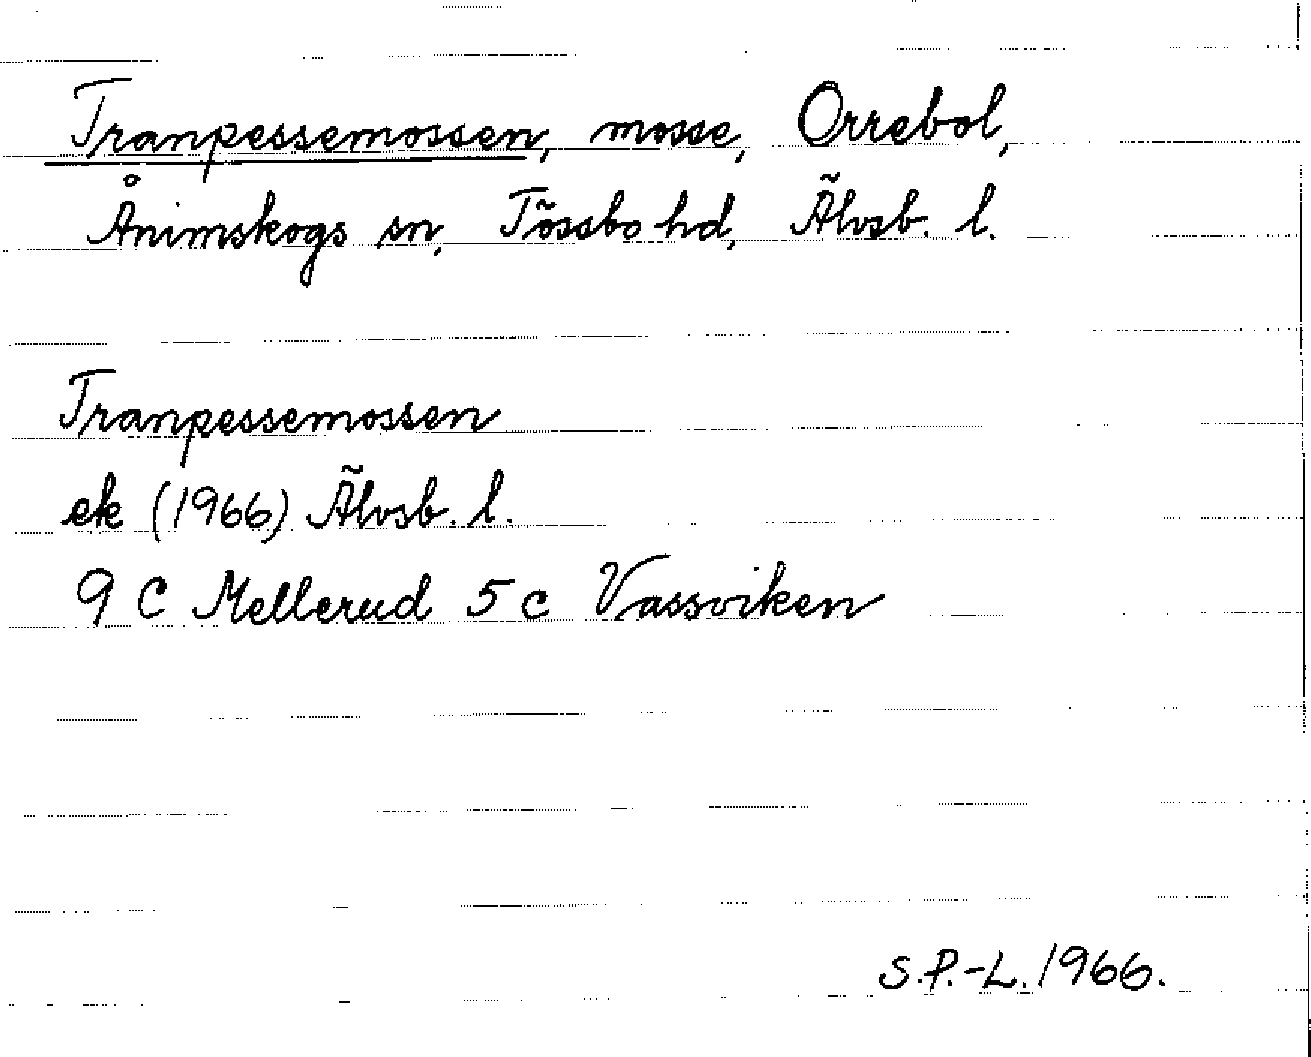 Tranpessemossen, mosse, Orrebol,
Ånimskogs sn, Tössbo hd, Älvsb. l.
Tranpessemossen
ek (1966) Älvsb. l.
9 C Mellerud 5 c Vassviken
S.P.-L. 1966.